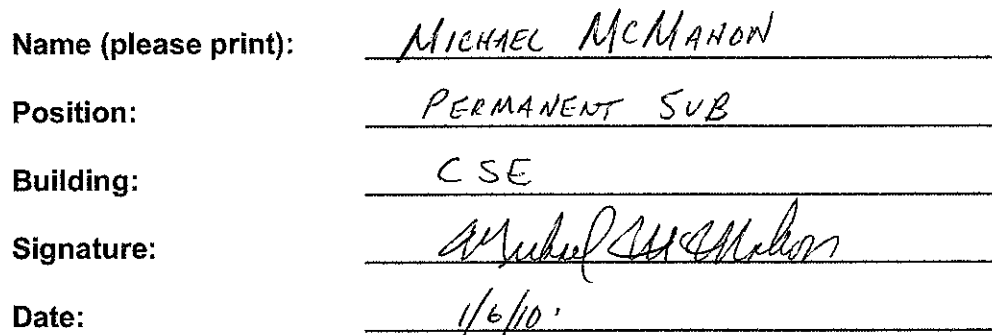 Name (please print): MICHAEL McMAHON
Position: PERMANENT SUB
Building: CSE
Signature: Michael McMahon
Date: 1/6/10